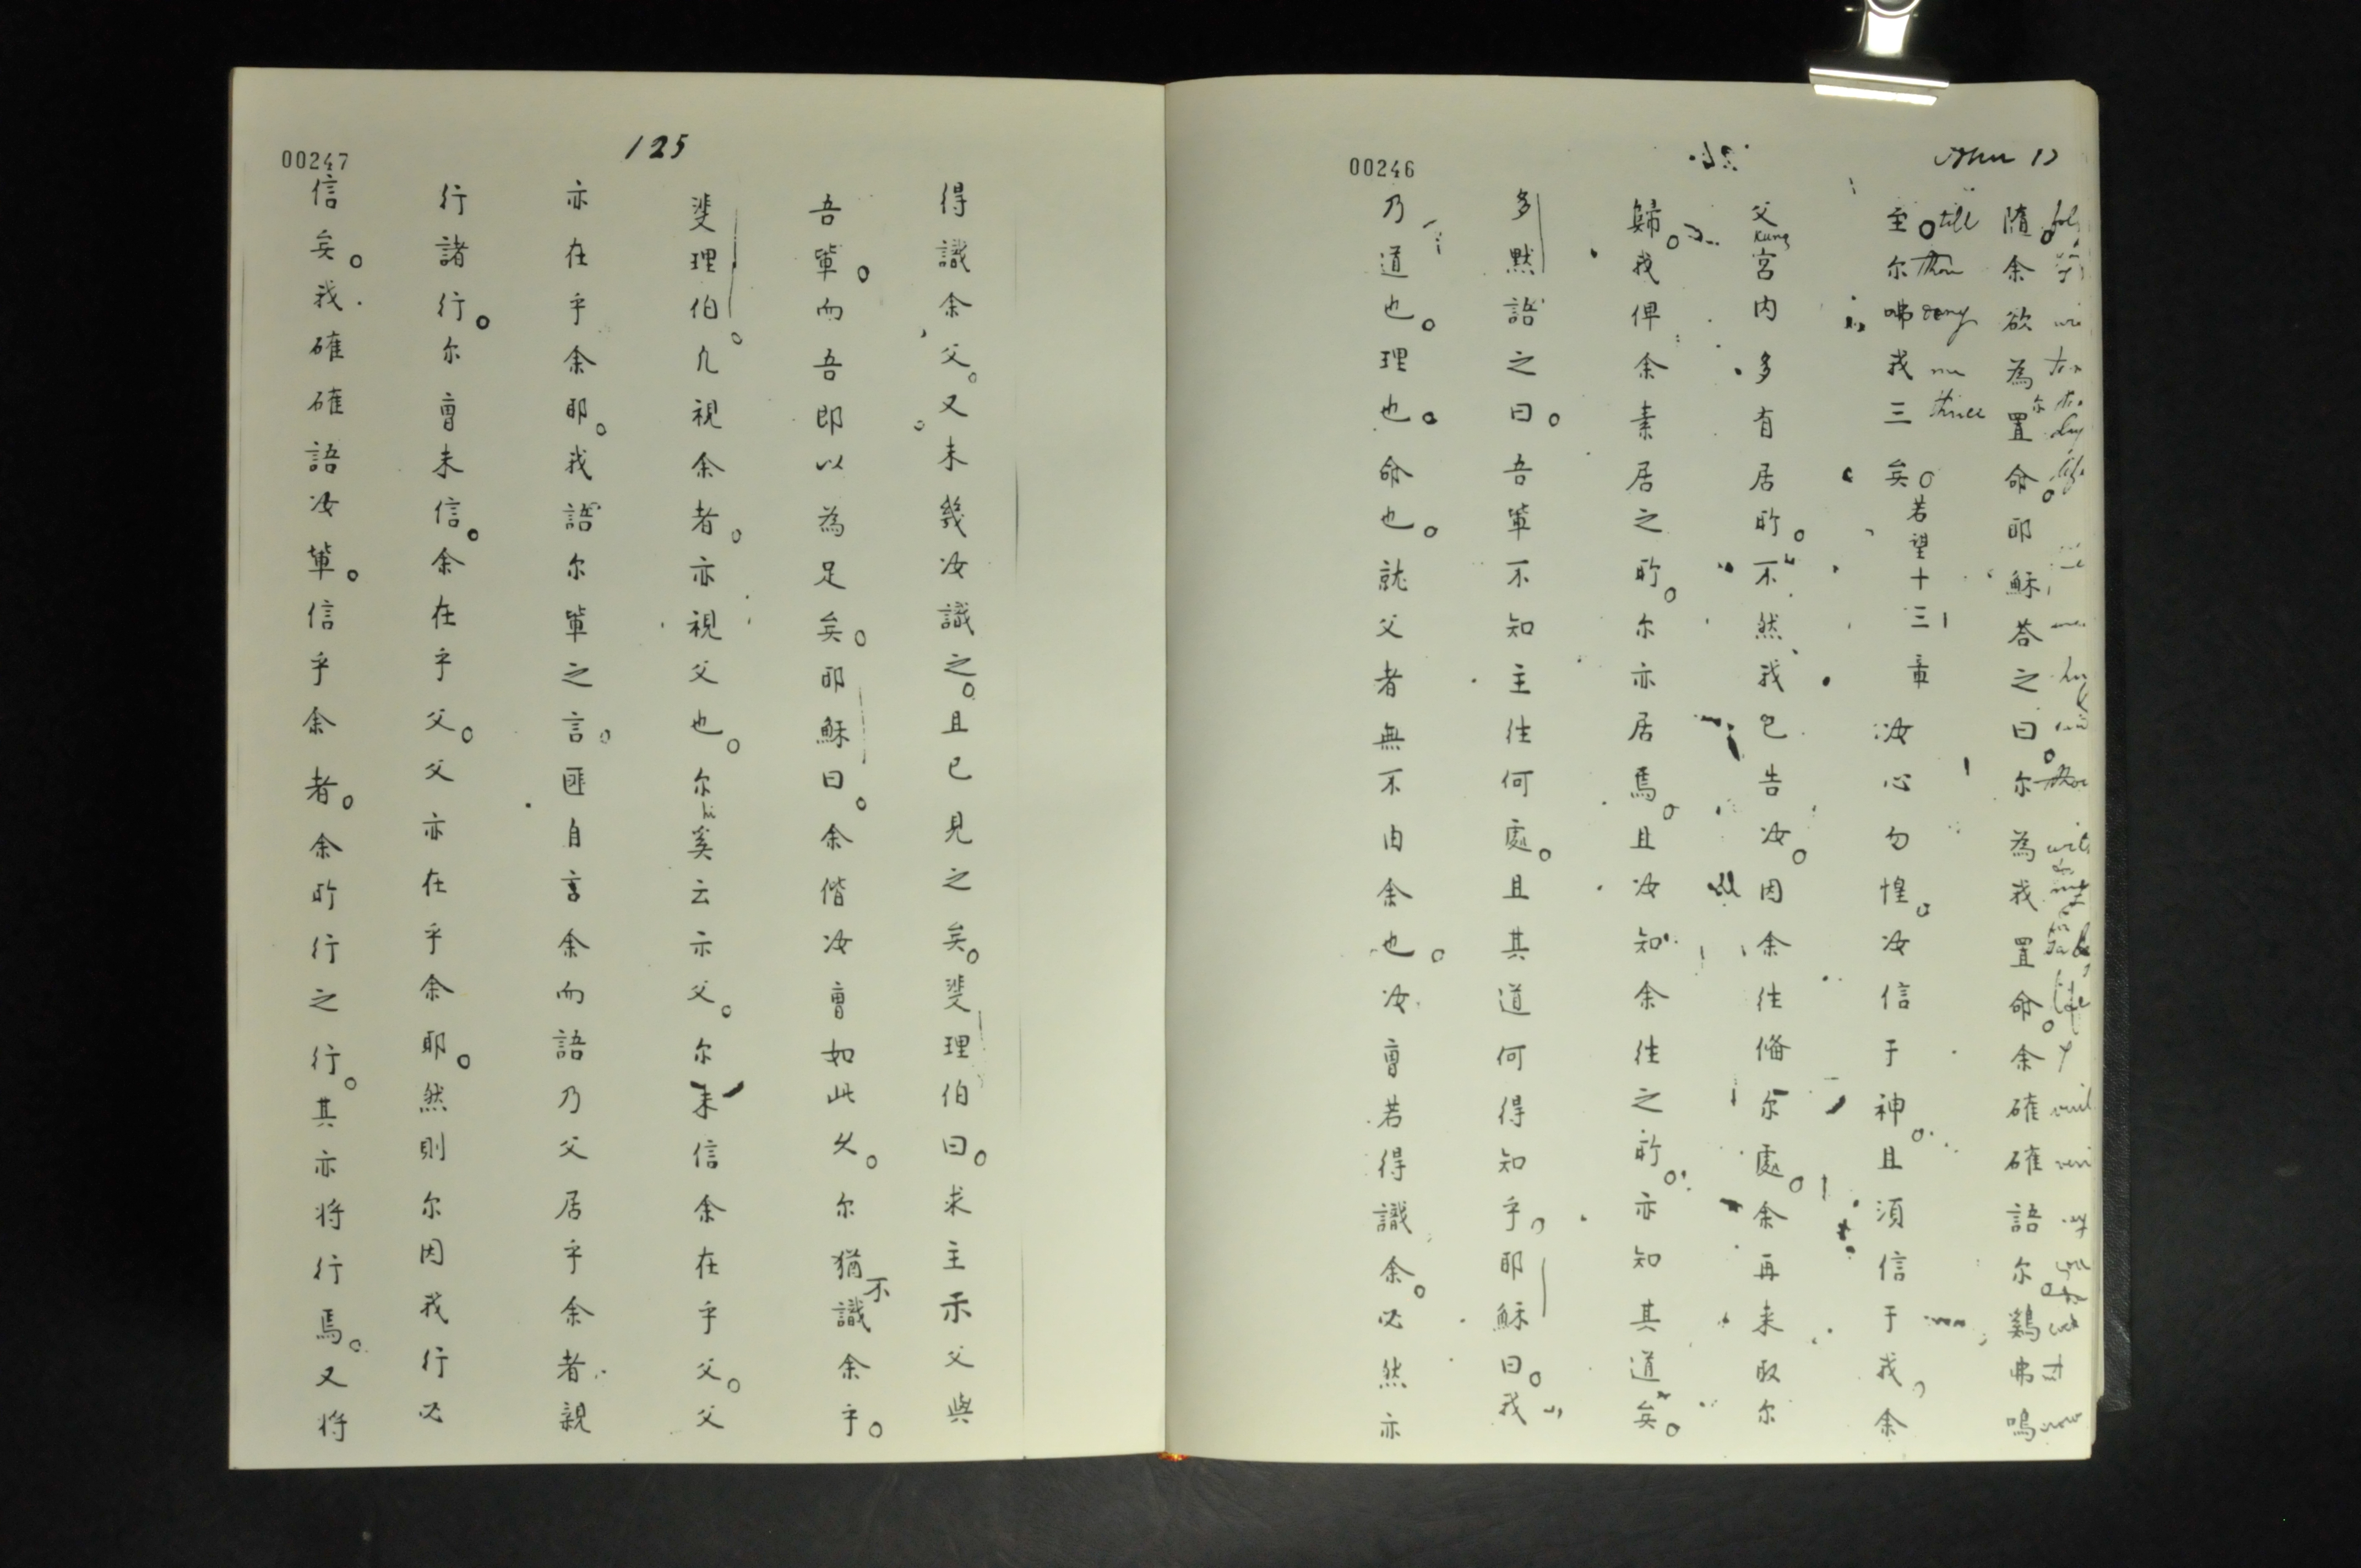 00246
隨。余欲為尔置命。耶穌答之曰。尔為我置命。余確確語尔。鷄弗鳴
至。尔咈我三矣。若望十三章 汝心勿惶。汝信于神。且須信于我。余
till thou deny me thrice
父宮内多有居所。不然我已告汝。因余往俻尔處。余再来取尔
Kung
歸。我俾余素居之所。尔亦居焉。且汝知余往之所。亦知其道矣。
多默語之曰。吾軰不知主往何處。且其道何得知乎。耶穌曰。我
乃道也。理也。命也。就父者無不由余也。汝曺若得識余。必然亦
125
00247
得識余父。又未幾汝識之。且已見之矣。斐理伯曰。求主示父與
吾軰。而吾即以為足矣。耶穌曰。余偕汝曺如此久。尔猶不識余乎。
斐理伯。凢視余者。亦視父也。尔奚云示父。尔未信余在乎父。父
hi
亦在乎余耶。我語尔軰之言。匪自言余而語乃父居乎余者親
行諸行。尔曺未信。余在乎父。父亦在乎余耶。然則尔因我行必
信矣。我確確語汝軰。信乎余者。余所行之行。其亦将行焉。又将